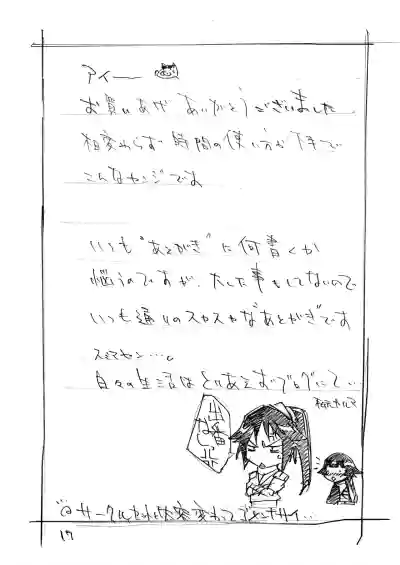 アイー
お買いあげ ありがとうございました
相変わらず 時間の使い方が下手で
こんなカンジです
いつも"あとがき"に何書くか
悩うのですが、大した事もしてないので
いつも通りのスカスカな"あとがき"です
スミマセン…。
日々の生活はとりあえずブログにて…
出番なしっ
サークル
変わって
17